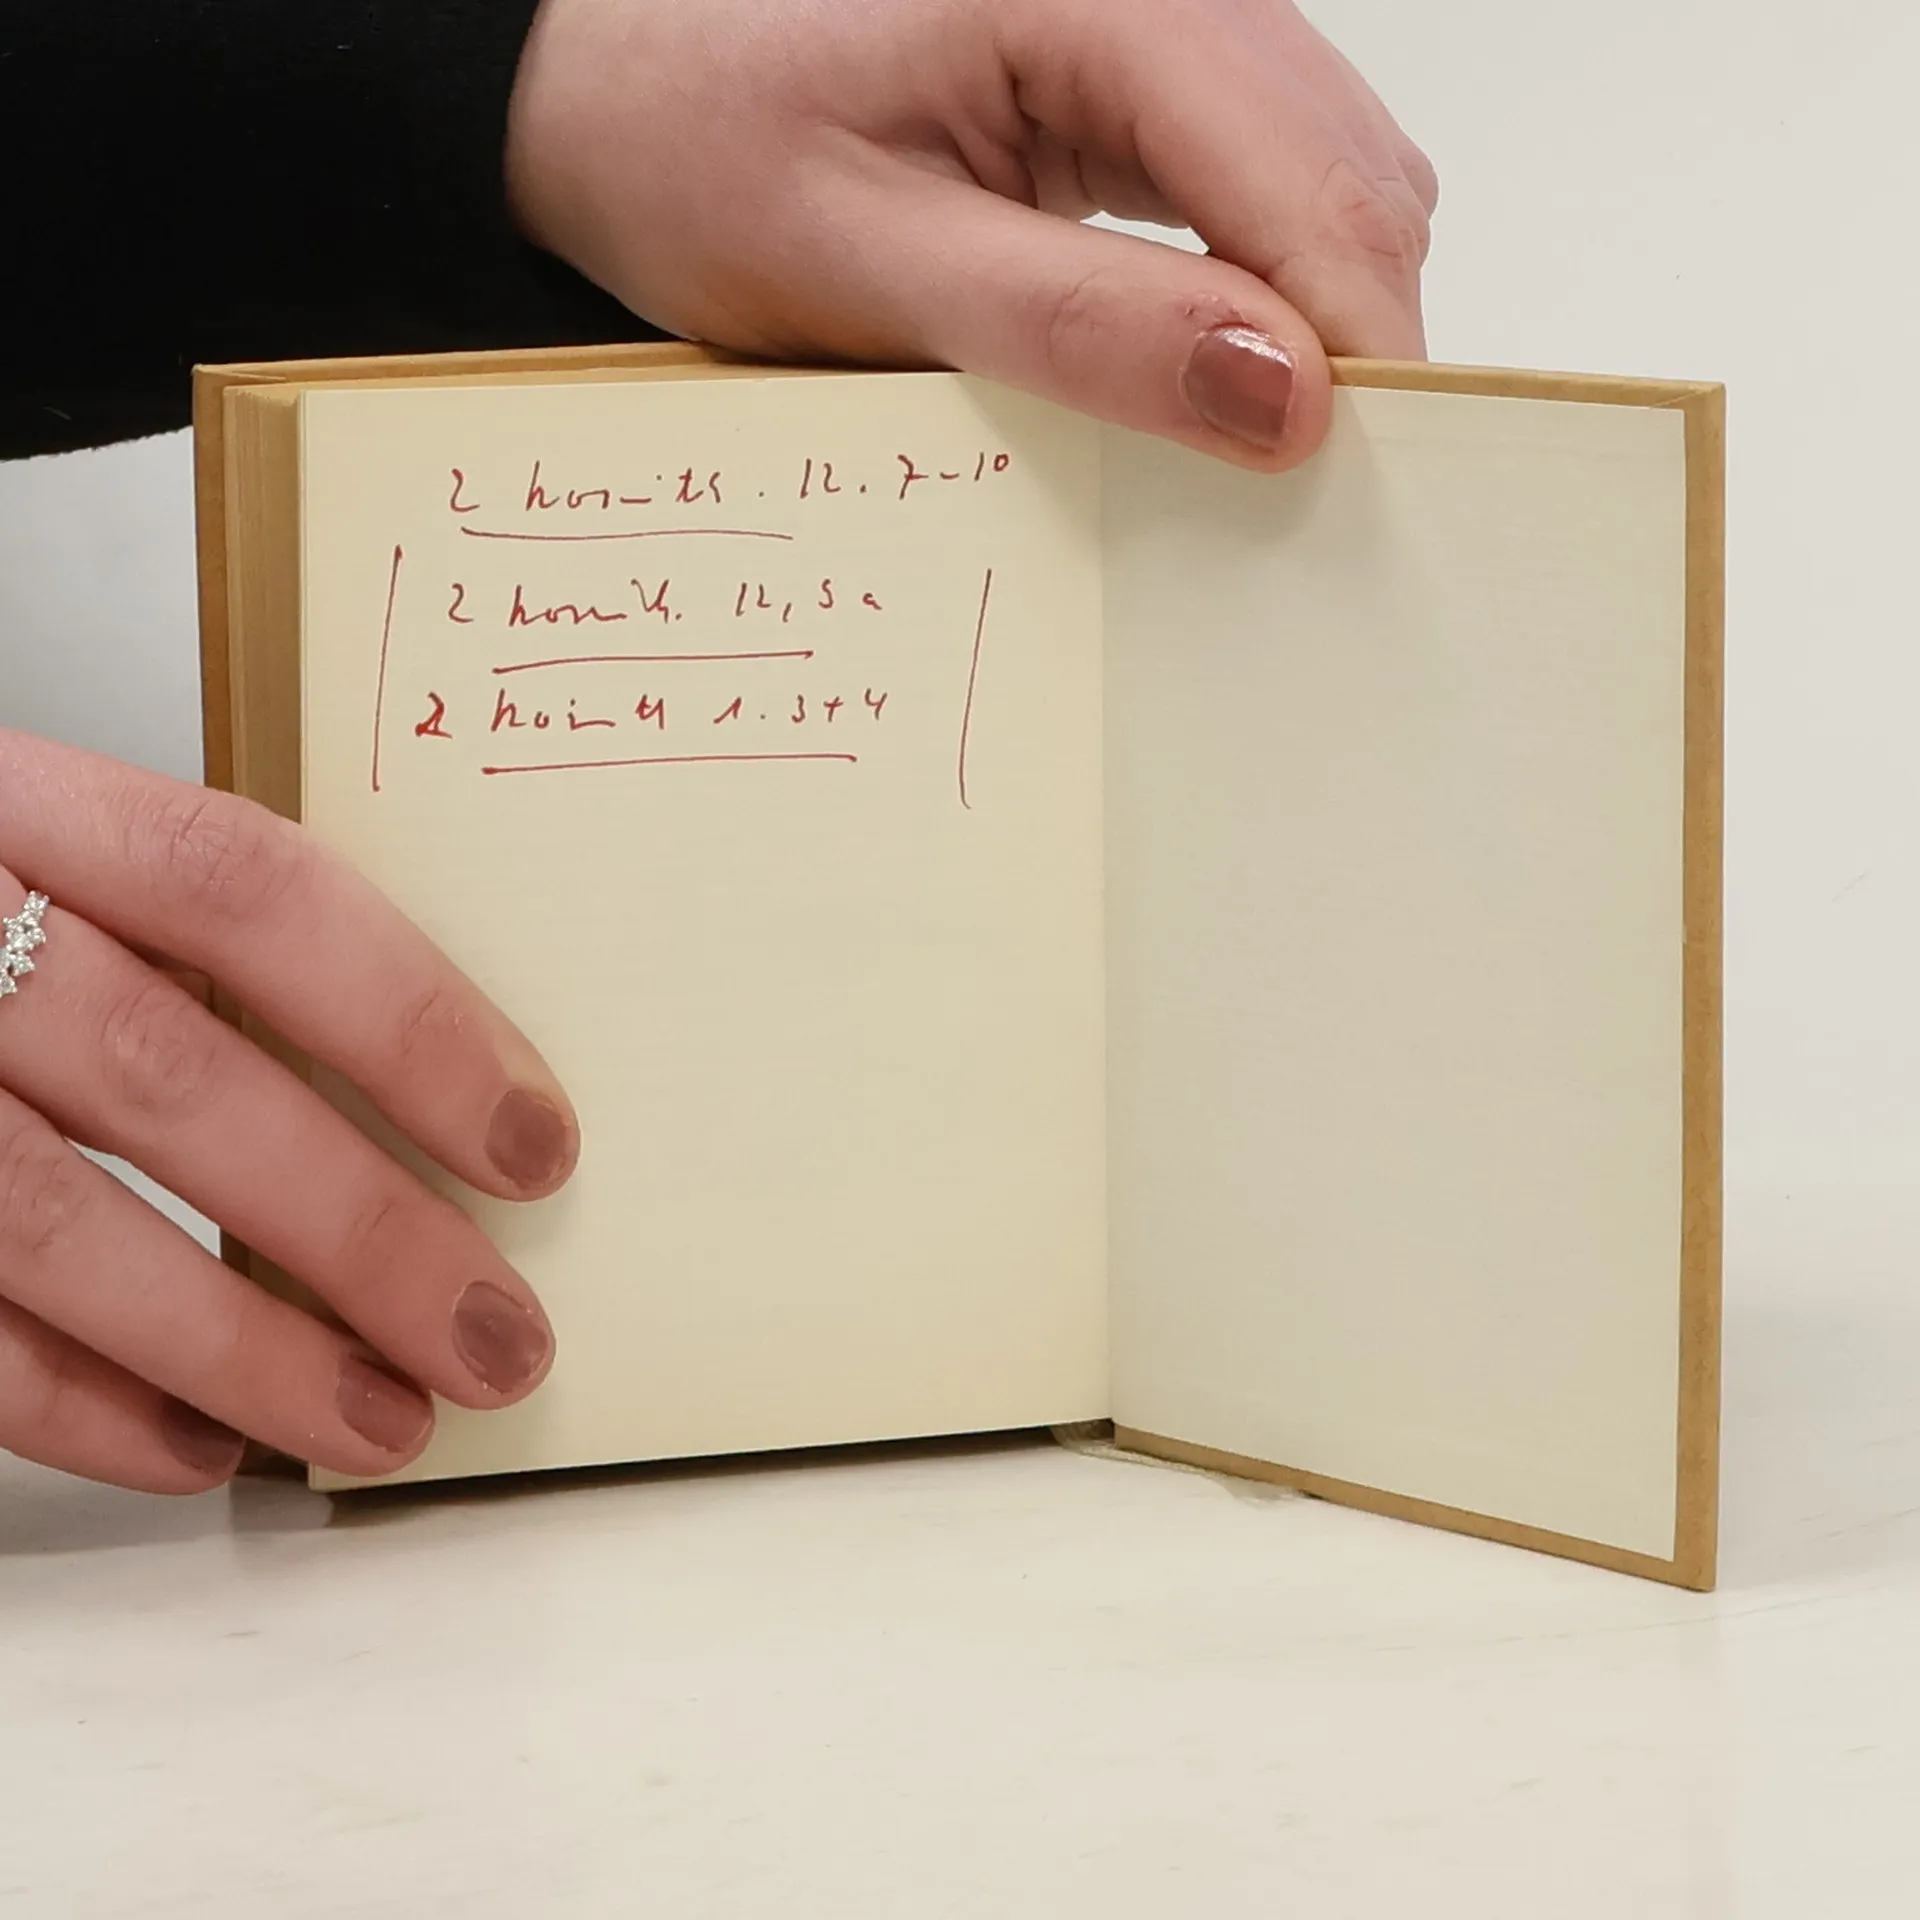 2 Korinth. 12. 7-10
2 Korinth. 12, 9a
2 Korinth 1. 3+4